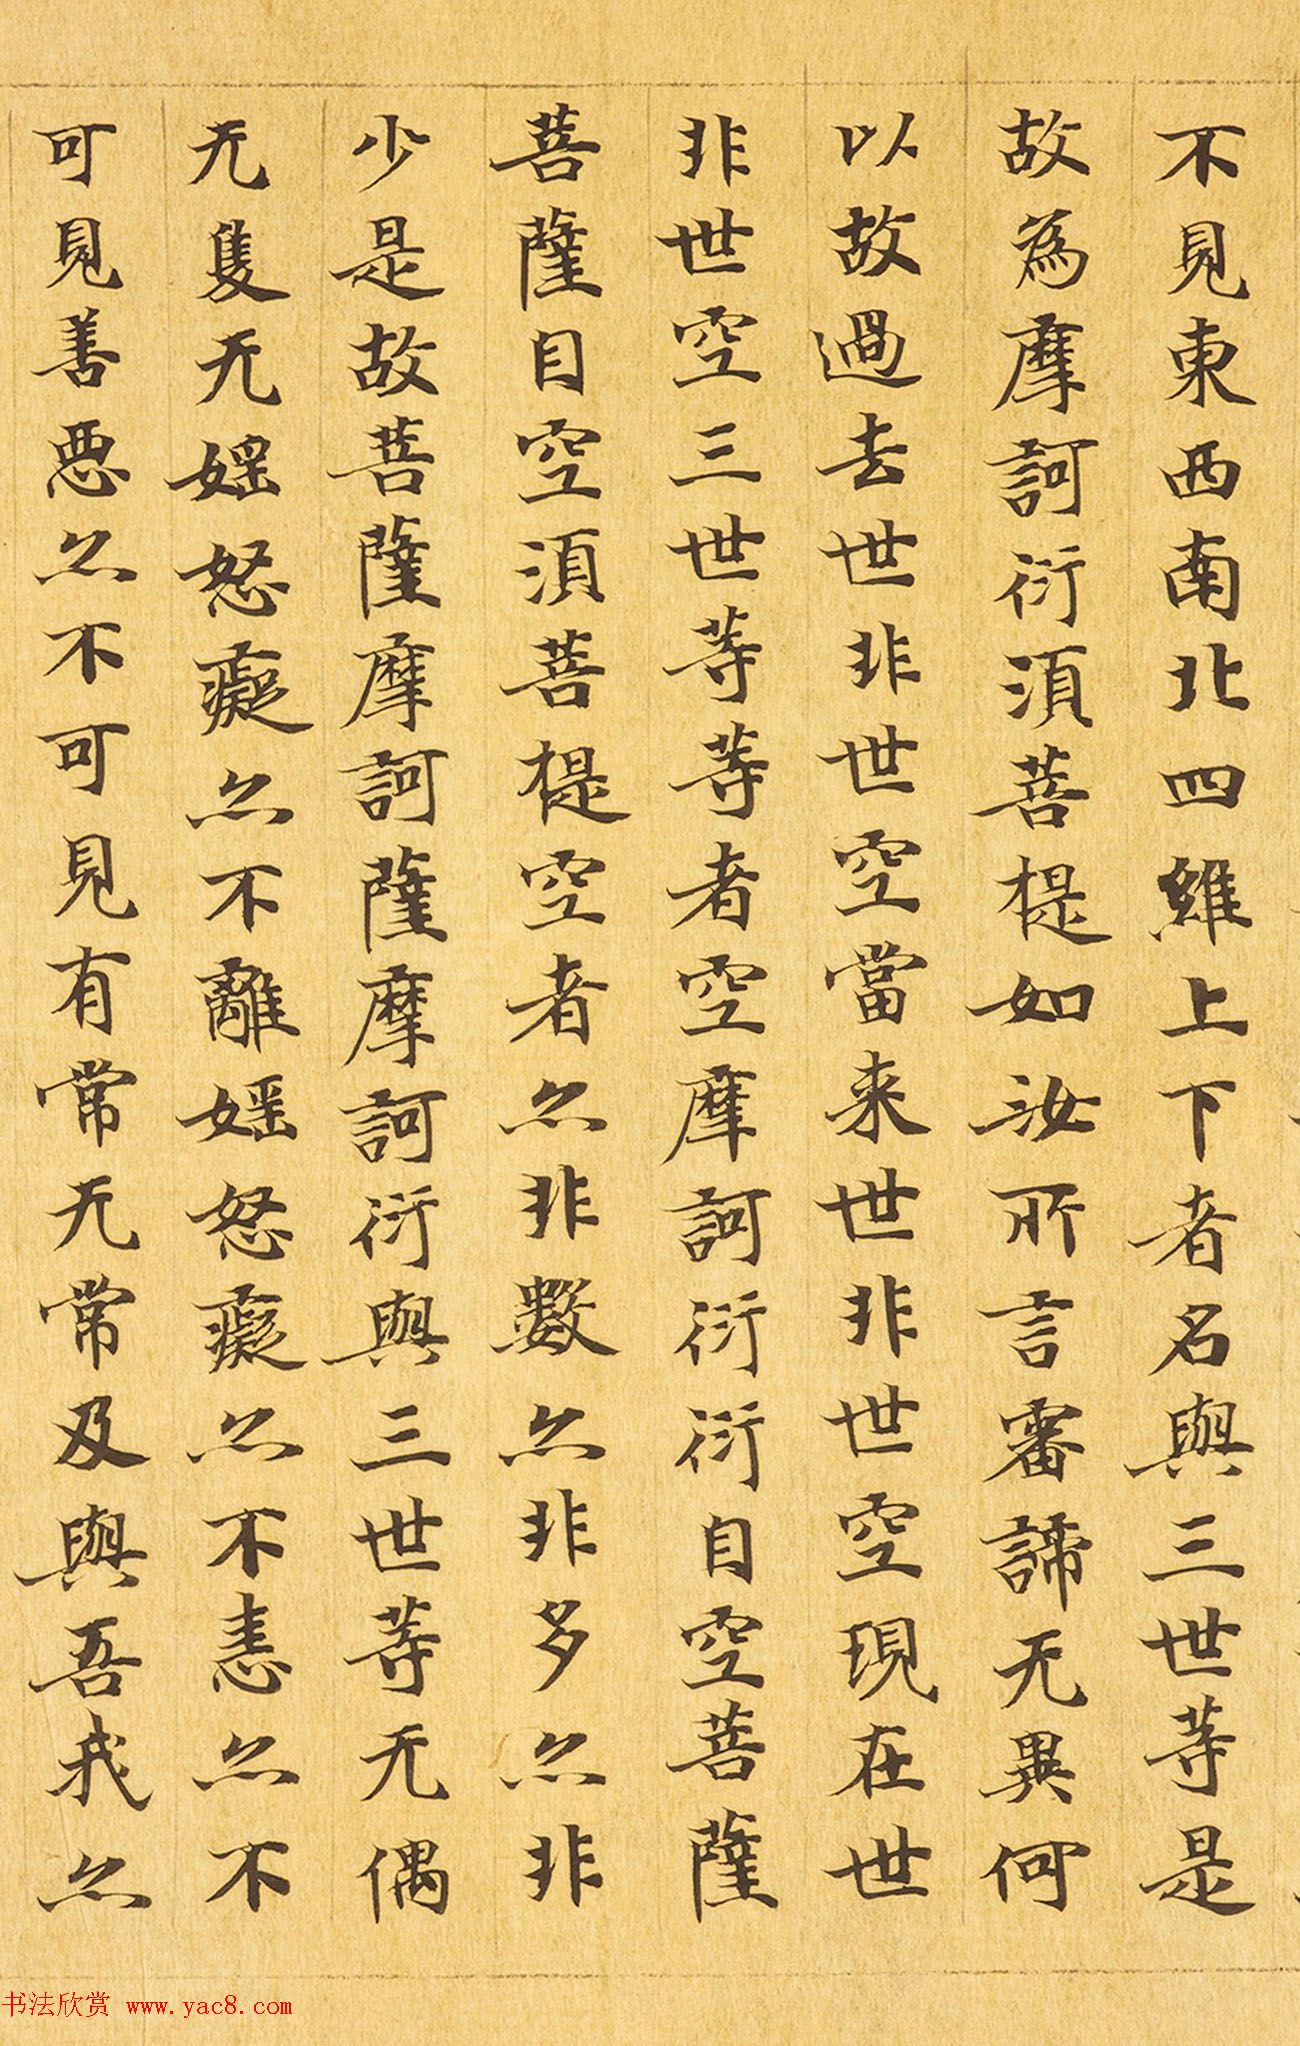 不見東西南北四維上下者名與三世等是
故為摩訶衍須菩提如汝所言審諦无異何
以故過去世非世空當来世非世空現在世
非世空三世等等者空摩訶衍衍自空菩薩
菩薩自空須菩提空者亦非數亦非多亦非
少是故菩薩摩訶薩摩訶衍與三世等无偶
无隻无婬怒癡亦不離婬怒癡亦不恚亦不
可見善惡亦不可見有常无常及與吾我亦
书法欣赏 www.yac8.com